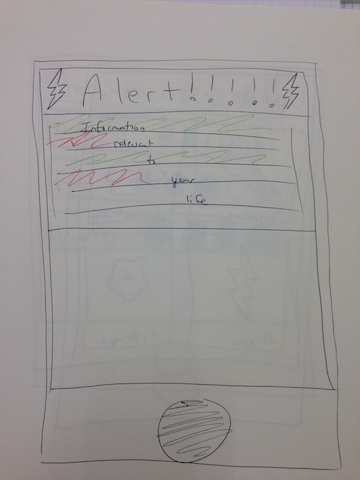 Alert!!!!!
Information
relevant
to
your
life